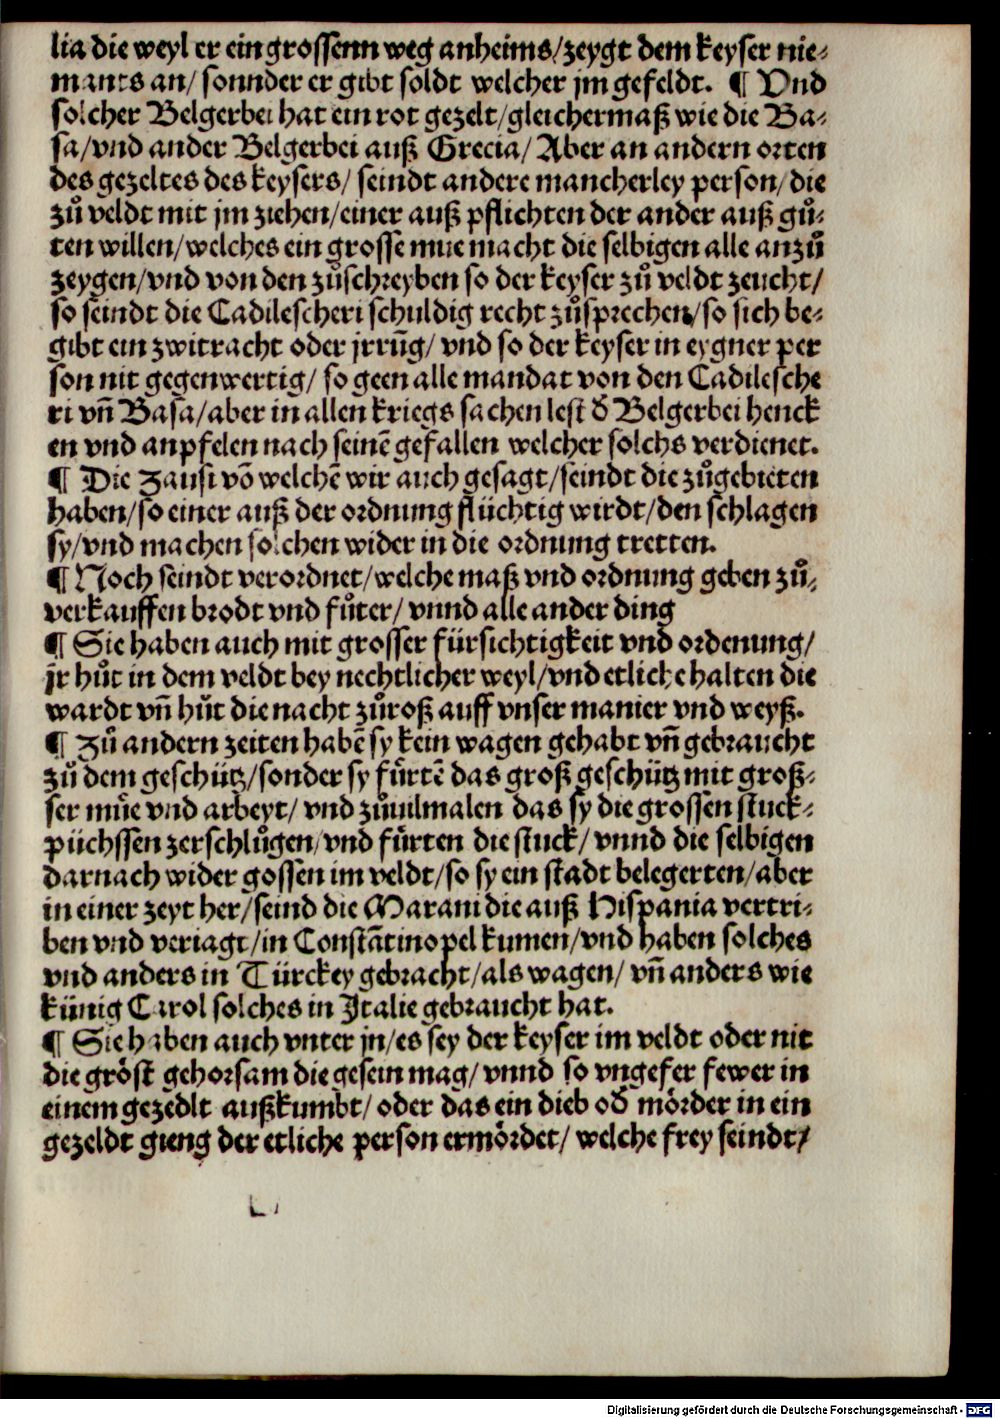 lia die weyl er ein grossenn weg anheims/zeygt dem keyser nie⸗
mants an/ sonnder er gibt soldt welcher jm gefeldt. ¶ Vnd
solcher Belgerbei hat ein rot gezelt/gleichermaß wie die Ba⸗
sa/vnd ander Belgerbei auß Grecia/ Aber an andern orten
des gezeltes des keysers/ seindt andere mancherley person/die
zů veldt mit jm ziehen/einer auß pflichten der ander auß gů⸗
ten willen/welches ein grosse mue macht die selbigen alle anzů
zeygen/vnd von den zůschreyben so der keyser zů veldt zeucht/
so seindt die Cadilescheri schuldig recht zůsprechen/so sich be⸗
gibt ein zwitracht oder jrrũg/ vnd so der keyser in eygner per
son nit gegenwertig/ so geen alle mandat von den Cadilesche
ri vñ Basa/aber in allen kriegs sachen lest d̃ Belgerbei henck
en vnd anpfelen nach seinẽ gefallen welcher solchs verdienet.
¶ Die Zausi võ welchẽ wir auch gesagt/seindt die zůgebieten
haben/so einer auß der ordnung flüchtig wirdt/den schlagen
sy/vnd machen solchen wider in die ordnung tretten.
¶ Noch seindt verordnet/welche maß vnd ordnung geben zů⸗
verkauffen brodt vnd fůter/ vnnd alle ander ding
¶ Sie haben auch mit grosser fürsichtigkeit vnd ordenung/
jr hůt in dem veldt bey nechtlicher weyl/vnd etliche halten die
wardt vñ hůt die nacht zůroß auff vnser manier vnd weyß.
¶ Zů andern zeiten habẽ sy kein wagen gehabt vñ gebraucht
zů dem geschütz/sonder sy fůrtẽ das groß geschütz mit groß⸗
ser můe vnd arbeyt/ vnd zůuilmalen das sy die grossen stuck⸗
püchssen zerschlůgen/vnd fůrten die stuck/ vnnd die selbigen
darnach wider gossen im veldt/so sy ein stadt belegerten/aber
in einer zeyt her/seind die Marani die auß Hispania vertri⸗
ben vnd veriagt/in Constãtinopel kumen/vnd haben solches
vnd anders in Türckey gebracht/als wagen/ vñ anders wie
künig Carol solches in Italie gebraucht hat.
¶ Sie haben auch vnter jn/es sey der keyser im veldt oder nit
die gröst gehorsam die gesein mag/ vnnd so vngefer fewer in
einem gezedlt außkumbt/ oder das ein dieb od̃ mörder in ein
gezeldt gieng der etliche person ermördet/ welche frey seindt/
Digitalisierung gefördert durch die Deutsche Forschungsgemeinschaft - DFG